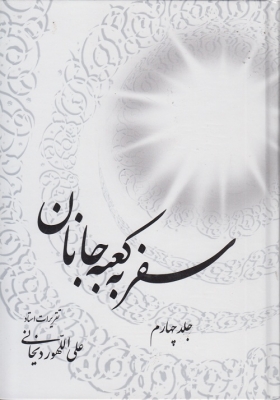 سفر به کعبه جانان
جلد چهارم
تقریرات استاد
علی اللهوردیخانی